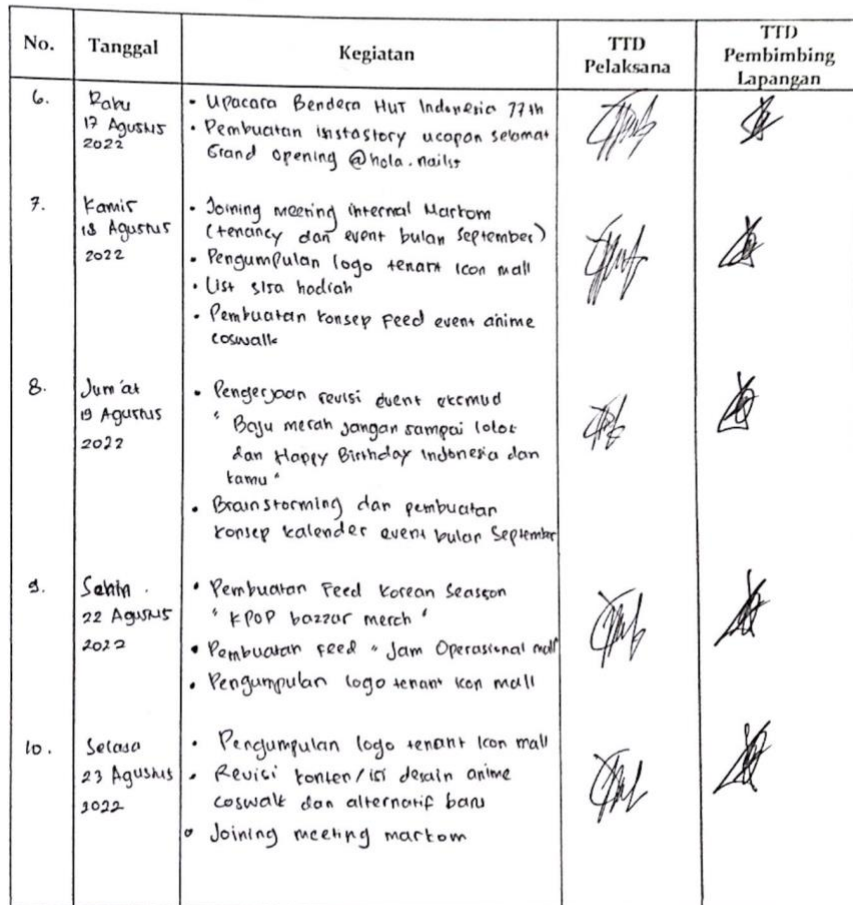 No. Tanggal Kegiatan TTD Pelaksana TTD Pembimbing Lapangan
6. Rabu 17 Agustus 2022
• Upacara Bendera HUT Indonesia 77th
• Pembuatan instastory ucapan selamat
Grand opening @hola.nailst
7. Kamis 18 Agustus 2022
• Joining meeting internal Markom
(tenancy dan event bulan September)
• Pengumpulan logo tenant Icon mall
• List sisa hadiah
• Pembuatan konsep Feed event anime
coswalk
8. Jum'at 19 Agustus 2022
• Pengerjaan revisi event
" Baju merah jangan sampai lolot
dan Happy Birthday Indonesia dan
kamu "
• Brainstorming dan pembuatan
konsep kalender event bulan September
9. Senin. 22 Agustus 2022
• Pembuatan Feed Korean Seasson
" KPOP bazzar merch "
• Pembuatan feed " Jam Operasional mall
• Pengumpulan logo tenant Icon mall
10. Selasa 23 Agustus 2022
• Pengumpulan logo tenant Icon mall
• Revisi konten/isi desain anime
coswalk dan alternatif baru
• Joining meeting markom